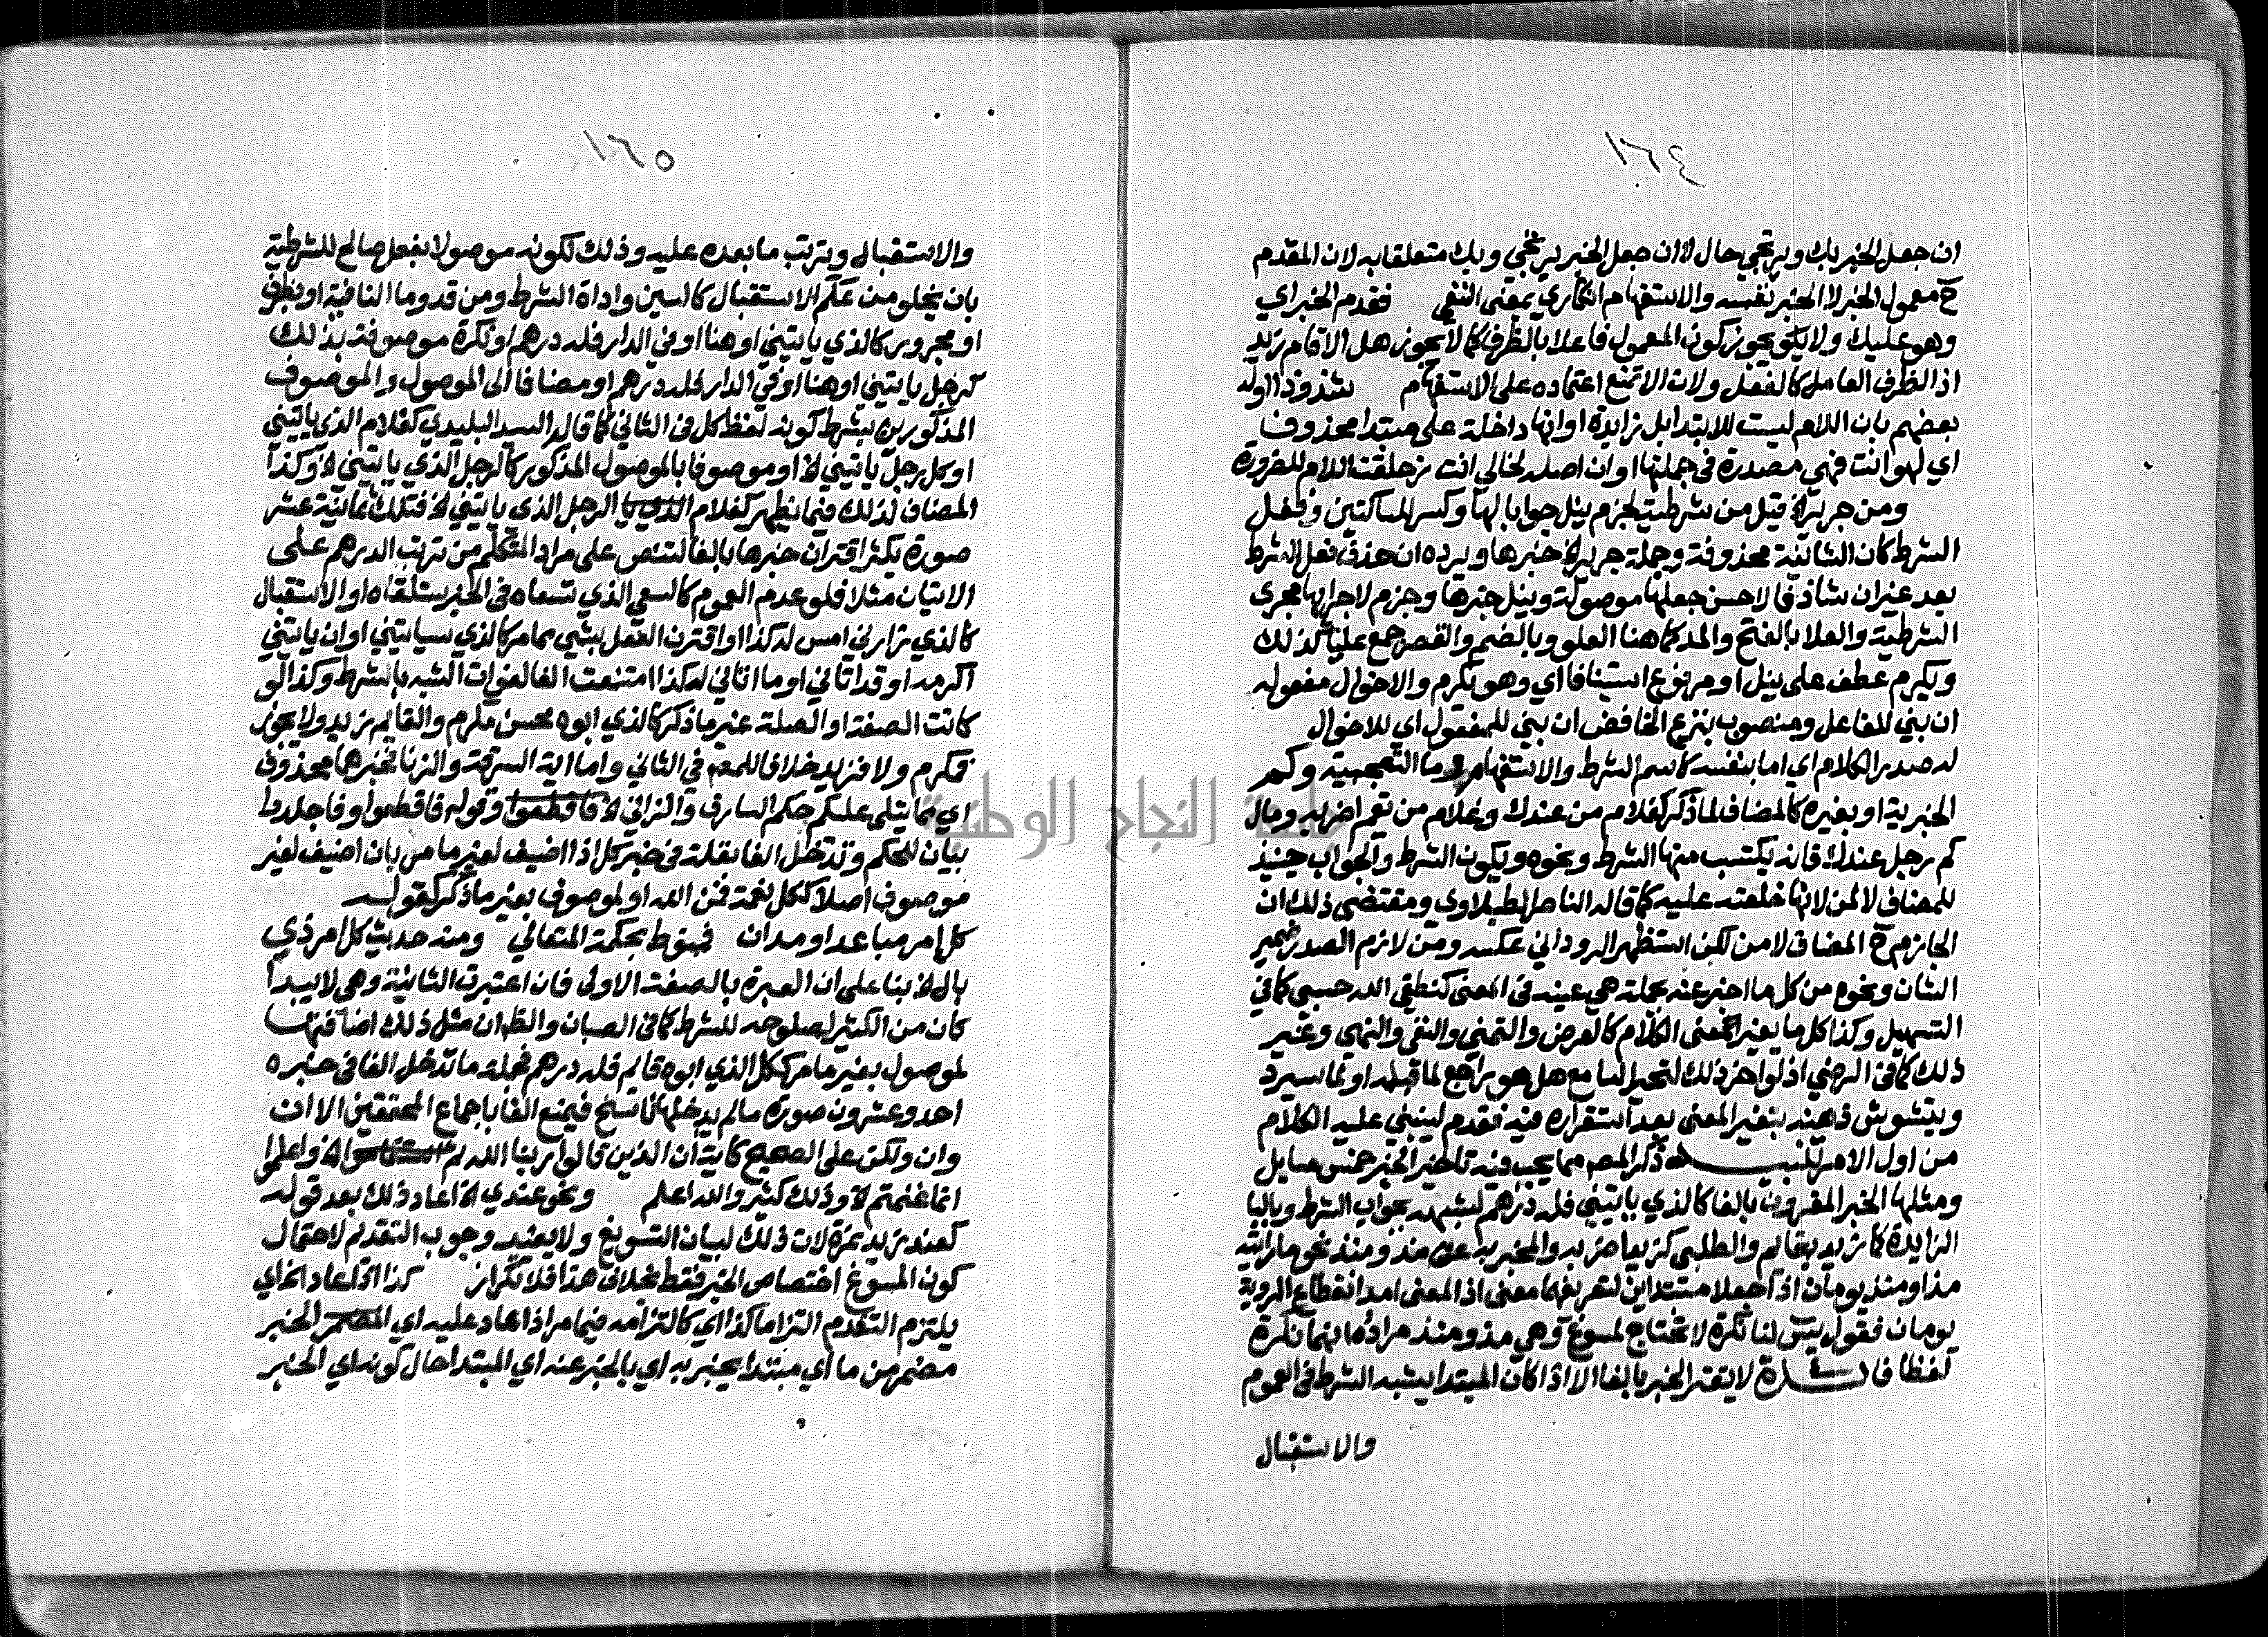 ١٦٤
ان جعل الخبر بك ويرتجي حال لا ان جعل الخبر يرتجي وبك متعلقا به لان المقدم
ح معمول الخبر لا الخبر نفسه والاستفهام انكاري بمعنى النفي فقدم الخبر اي
وهو عليك ولا يجوز كون المعمول فاعلا بالظرف كما لا يجوز هل الا قام زيد
اذ الظرف العامل كالفعل ولان الا تمنع اعتماده على الاستفهام شذوذا اوله
بعضهم بان اللام ليست للابتدا بل زايدة او انها داخلة على مبتدا محذوف
اي لهو انت فهي مصدرة في جملتها او ان اصله لخالي انت زحلقت اللام للضرورة
ومن جرير الخ قيل من شرطية لجزم ينل جوابا لها وكسر للساكنين وفعل
الشرط كان الشانية محذوفة وجملة جرير الخ خبرها ويرده ان حذف فعل الشرط
بعد غير ان شاذ فالاحسن جعلها موصولة وينل خبرها وجزم لاجرايها مجرى
الشرطية والعلا بالفتح والمد كما هنا العلو وبالضم والقصر جمع عليا كذلك
ويكرم عطف على ينل او مرفوع استينافا اي وهو يكرم والاخوال مفعوله
ان بني للفاعل ومنصوب بنزع الخافض ان بني للمفعول اي للاخوال
له صدر الكلام اي اما بنفسه كاسم الشرط والاستفهام وما التعجبية وكم
الخبرية او بغيره كالمضاف لما ذكر كغلام من عندك وغلام من تقم اضربه ومال
كم رجل عندك فانه يكتسب منها الشرط ونحوه ويكون الشرط والجواب حينئذ
للمضاف لا لمن لانها خلعته عليه كما قاله الناصر الطبلاوي ومقتضى ذلك ان
الجازم ح المضاف لا من لكن استظهر الروداني عكسه ومن لازم الصدر ضمير
الشان ونحوه من كل ما اخبر عنه بجملة هي عينه في المعنى كنطقي الله حسبي كما في
التسهيل وكذا كل ما يغير معنى الكلام كالعرض والتمني والنفي والنهي وغير
ذلك كما في الرضي اذ لو اخر ذلك لتحير السامع هل هو راجع لما قبله او لما سيرد
ويتشوش ذهنه بتغير المعنى بعد استقراره فيه فقدم ليبنى عليه الكلام
من اول الامر تنبيه ذكر المص مما يجب فيه تاخير الخبر خمس مسايل
ومثلها الخبر المقرون بالفا كالذي ياتيني فله درهم لشبهه بجواب الشرط وبالبا
الزايدة كما زيد بقايم والطلبي كزيد اضربه والمخبر به عن مذ ومنذ نحو ما رايته
مذ او منذ يومان اذا جعلا مبتداين لتعريفهما معنى اذ المعنى امد انقطاع الروية
يومان فقول يس لنا نكرة لا تحتاج لمسوغ وهي مذ ومنذ مراده انهما نكرة
لفظا فايدة لا يقترن الخبر بالفا الا اذا كان المبتدا يشبه الشرط في العموم
والاستقبال
١٦٥
والاستقبال وترتب ما بعده عليه وذلك لكونه موصولا بفعل صالح للشرطية
بان يخلو من علم الاستقبال كالسين واداة الشرط ومن قد وما النافية او بظرف
او مجرور كالذي ياتيني او هنا او في الدار فله درهم او نكرة موصوفة بذلك
كرجل ياتيني او هنا او في الدار فله درهم او مضافا الى الموصول والموصوف
المذكورين بشرط كونه لفظ كل في الثاني كما قاله السيد البليدي كغلام الذي ياتيني
او كل رجل ياتيني الخ او موصوفا بالموصول المذكور كالرجل الذي ياتيني الخ وكذا
المضاف لذلك فيما يظهر كغلام الرجل الذي ياتيني الخ فتلك ثمانية عشر
صورة يكثر اقتران خبرها بالفا لتنص على مراد المتكلم من ترتب الدرهم على
الاتيان مثلا فلو عدم العموم كالسعي الذي تسعاه في الخير ستلقاه او الاستقبال
كالذي زارني امس له كذا او اقترن الفعل بشي مما مر كالذي سياتيني او ان ياتني
اكرمه او قد اتاني او ما اتاني له كذا امتنعت الفا لفوات الشبه بالشرط وكذا لو
كانت الصفة او الصلة غير ما ذكر كالذي ابوه محسن مكرم والقايم زيد ولا يجوز
فمكرم ولا فزيد خلافا للمص في الثاني واما اية السرقة والزنا فخبرها محذوف
اي مما يتلى عليكم حكم السارق والزاني الخ وقوله فاقطعوا وفاجلدوا
بيان للحكم وتدخل الفا بقلة في خبر كل اذا اضيف لغير ما مر بان اضيف لغير
موصوف اصلا ككل نعمة فمن الله او لموصوف بغير ما ذكر كقوله
كل امر مباعد او مدان فمنوط بحكمة المتعالي ومنه حديث كل امر ذي
بال الخ بنا على ان العبرة بالصفة الاولى فان اعتبرت الثانية وهي لا يبدا
كان من الكثير لصلوحه للشرط كما في الصبان والظ ان مثل ذلك اضافتها
لموصول بغير ما مر ككل الذي ابوه قايم فله درهم فجملة ما تدخل الفا في خبره
احد وعشرون صورة ما لم يدخلها ناسخ فيمنع الفا باجماع المحققين الا ان
وان ولكن على الصحيح كاية ان الذين قالوا ربنا الله ثم استقاموا الخ واعلموا
انما غنمتم الخ وذلك كثير والله اعلم ونحو عندي الخ اعاد ذلك بعد قوله
كعند زيد نمرة لان ذلك لبيان التسويغ ولا يفيد وجوب التقدم لاحتمال
كون المسوغ اختصاص الخبر فقط بخلاف هذا فلا تكرار كذا اذا عاد الخ اي
يلتزم التقدم التزاما كذا اي كالتزامه فيما مر اذا عاد عليه اي الخبر
مضمر من ما اي مبتدا يخبر به اي بالخبر عنه اي المبتدا حال كونه اي الخبر
جامعة النجاح الوطنية